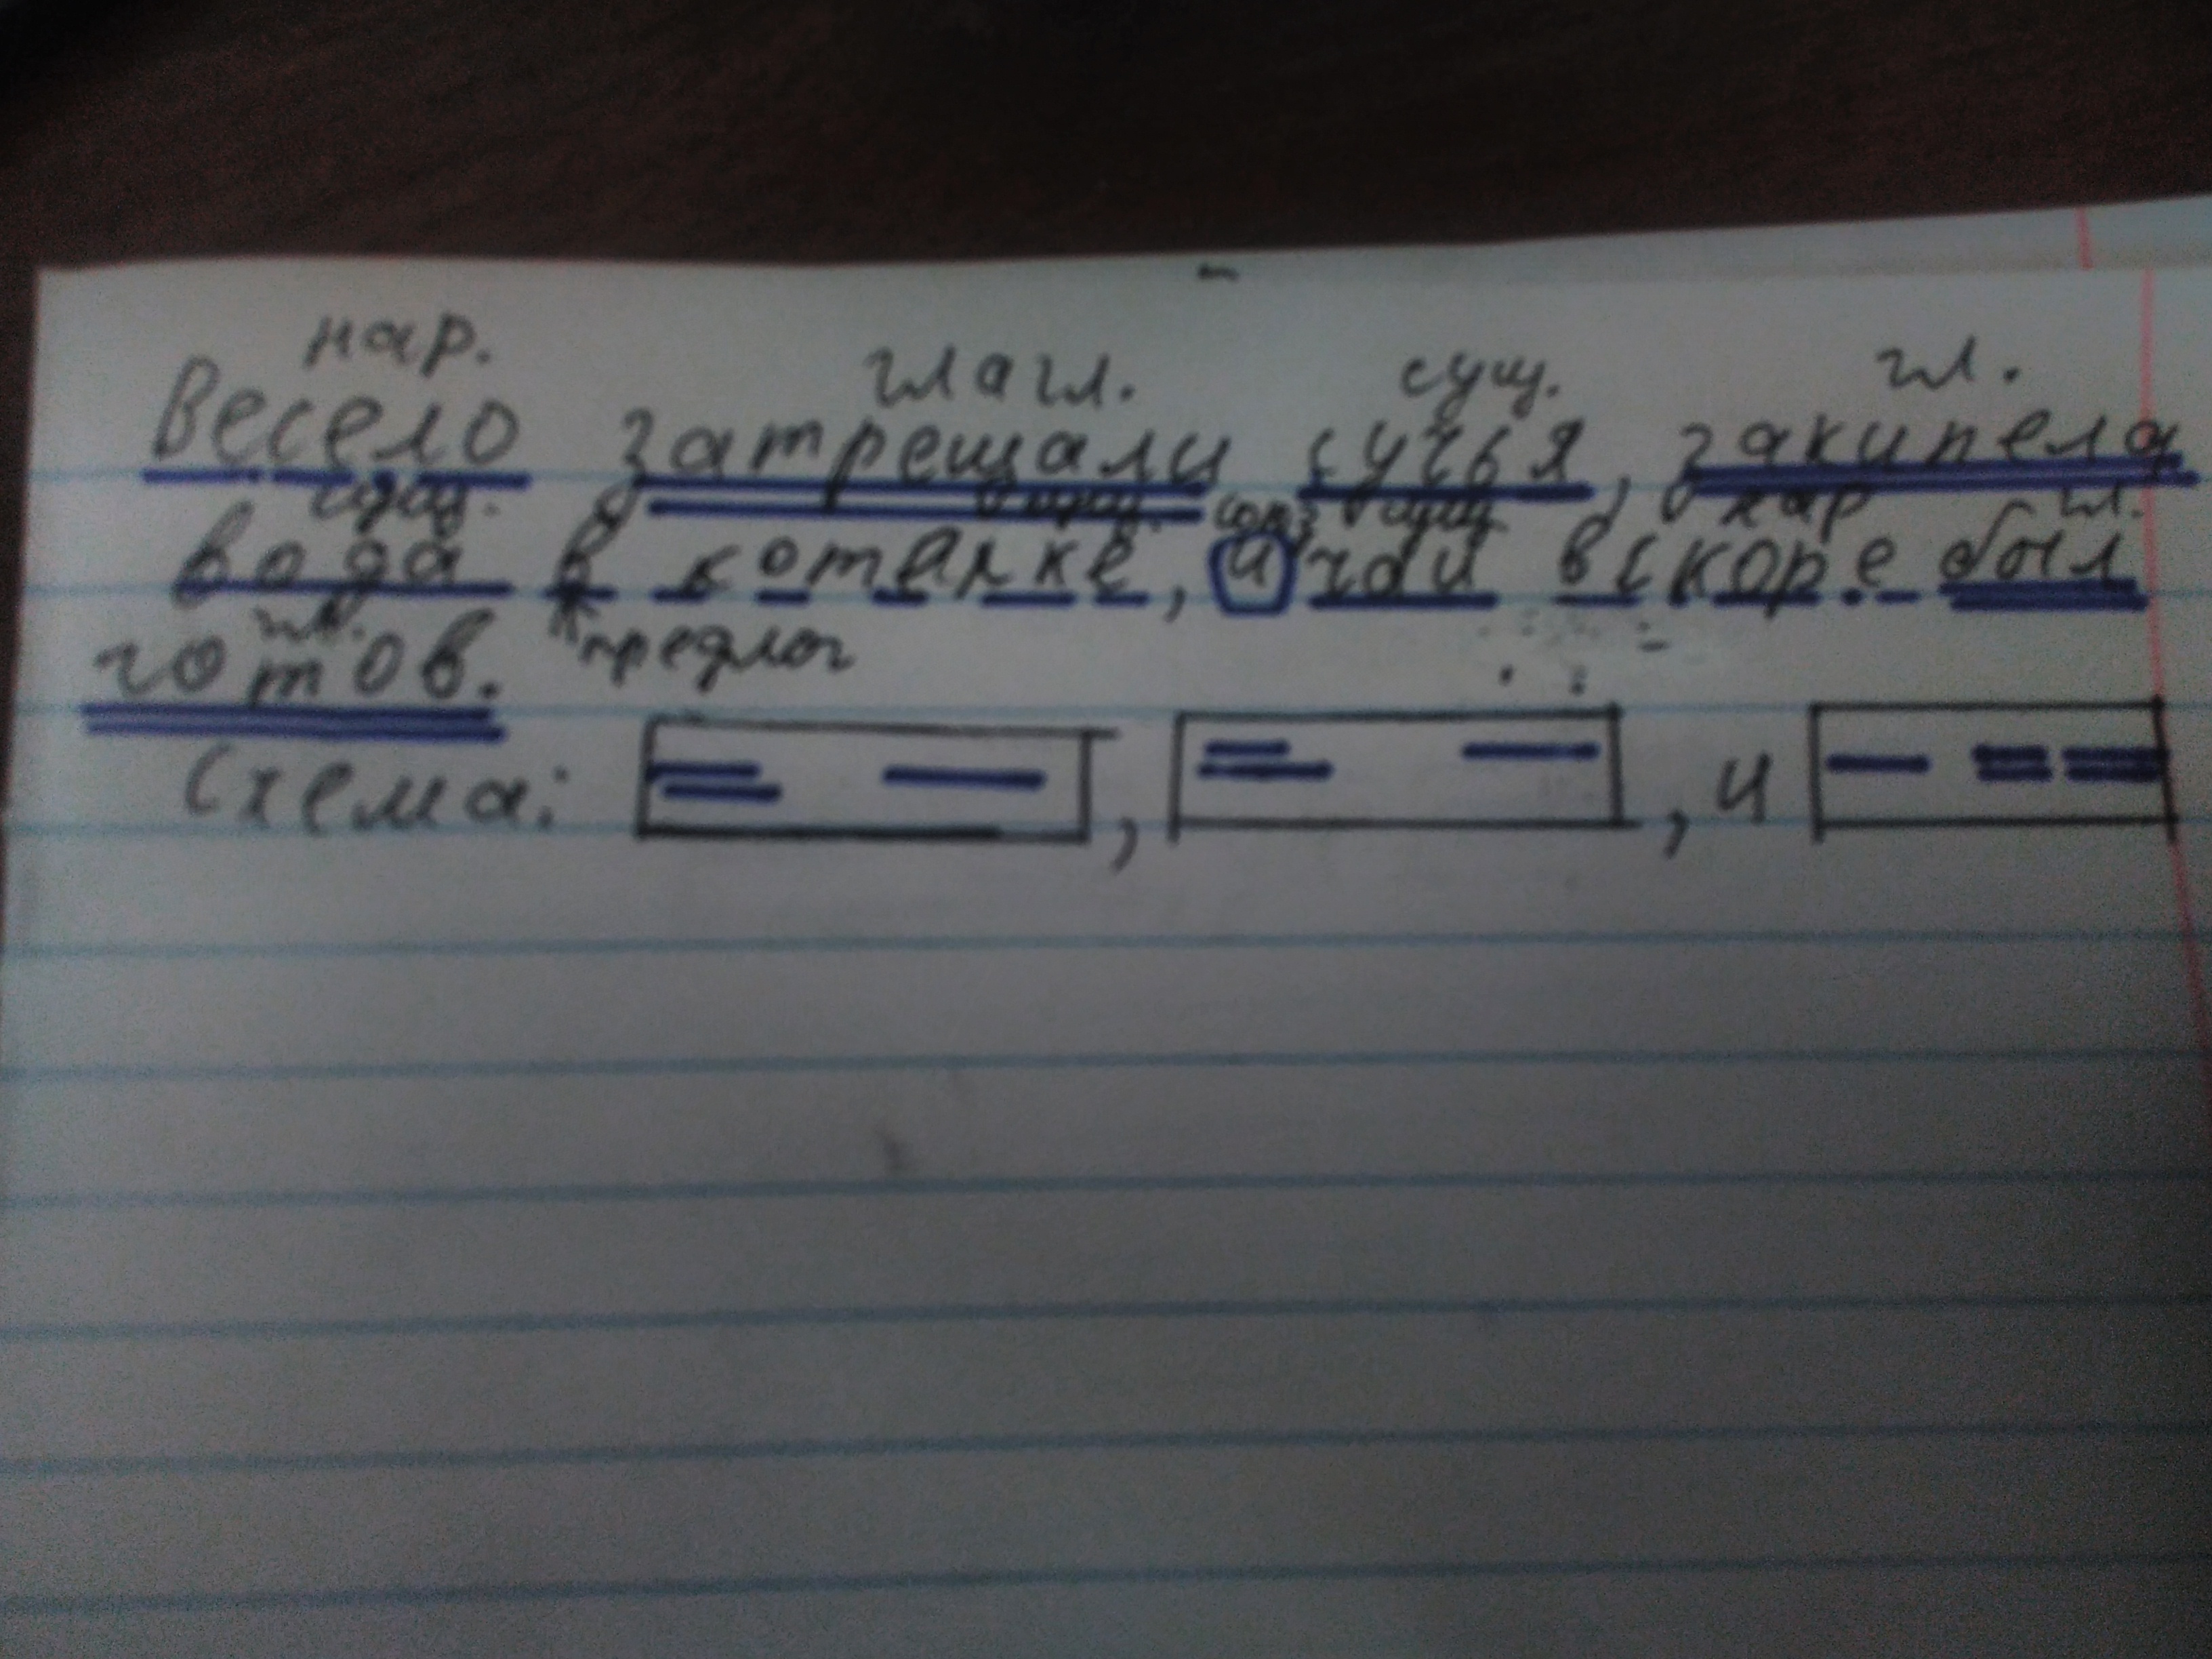 нар. глагл. сущ. гл.
Весело затрещали сучья, закипела
сущ. сущ. союз сущ. нар гл.
вода в котелке, и чай вскоре был
гл.
готов. предлог
Схема: , , и